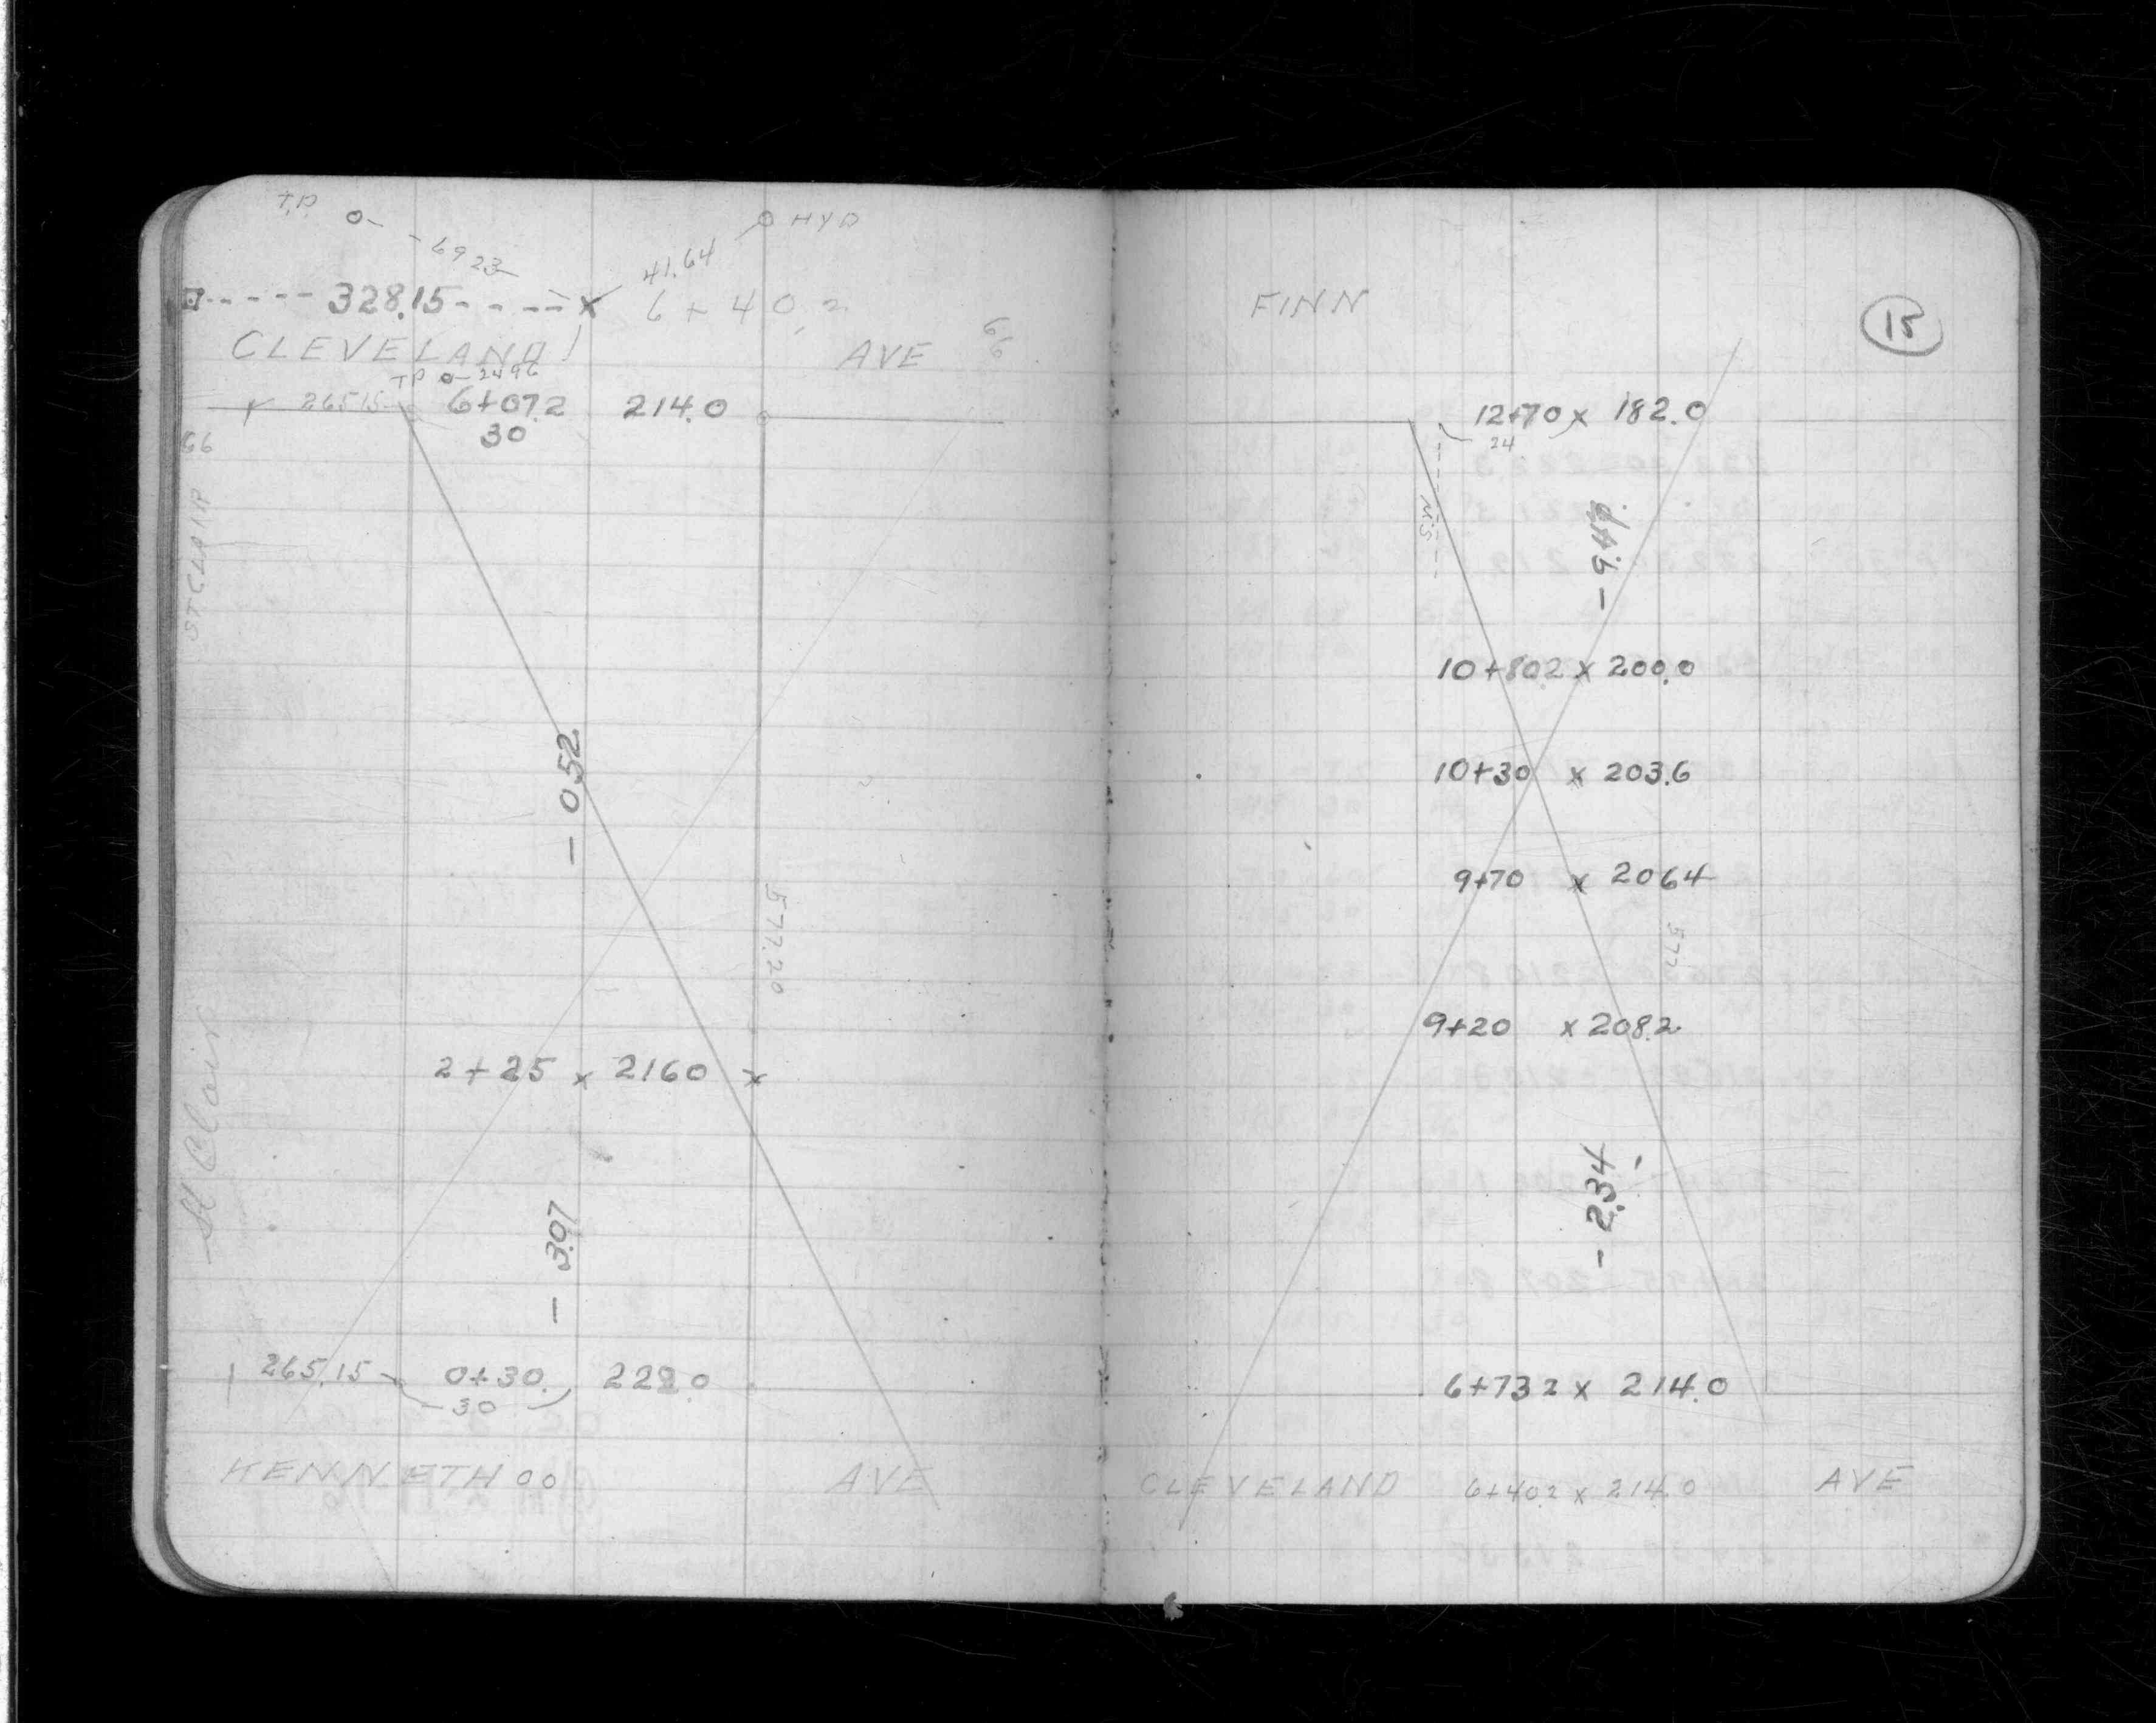 T.P. 0-
HYD
-6923
41.64
328.15
6+40.2
CLEVELAND
AVE
66
TP 0-2496
265.15
6+07.2 214.0
30
66
ST CLAIR
-0.52
577.20
2+25 x 216.0 x
St Clair
-3.07
265.15 0+30. 222.0
30
KENNETH 00
AVE
FINN
15
12+70 x 182.0
24
M.S
10+80.2 x 200.0
10+30 x 203.6
9+70 x 206.4
577
9+20 x 208.2
-2.34
6+732 x 214.0
CLEVELAND 6+40.2 x 214.0 AVE